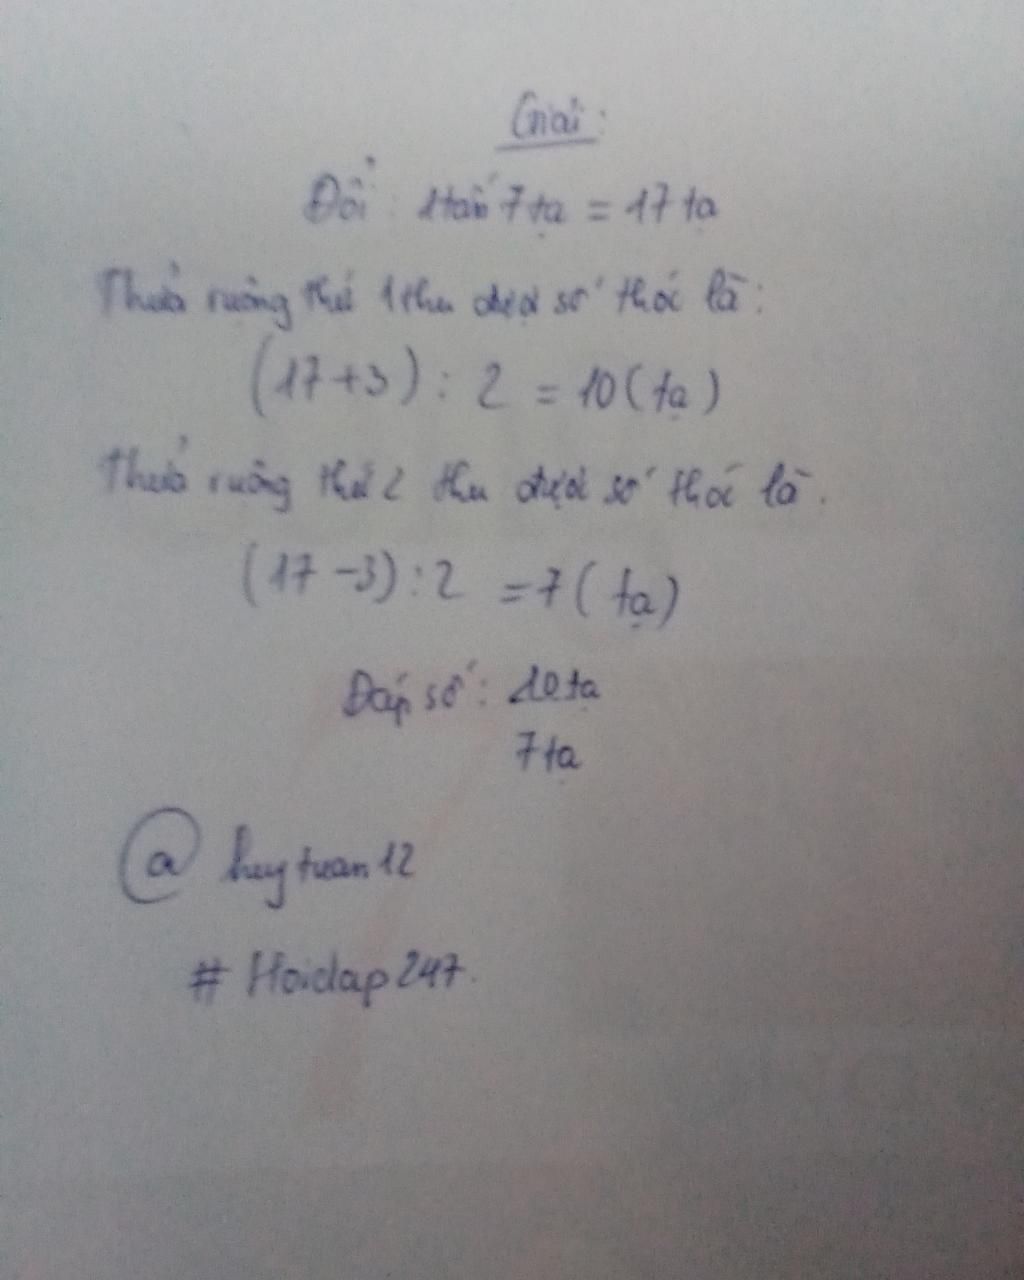 Giải:
Đổi: 1 tấn 7 tạ = 17 tạ
Thửa ruộng thứ 1 thu được số thóc là:
(17+3) : 2 = 10 (tạ)
Thửa ruộng thứ 2 thu được số thóc là.
(17-3) : 2 = 7 (tạ)
Đáp số: 10 tạ
7 tạ
@ huytuan12
# Hoidap247.